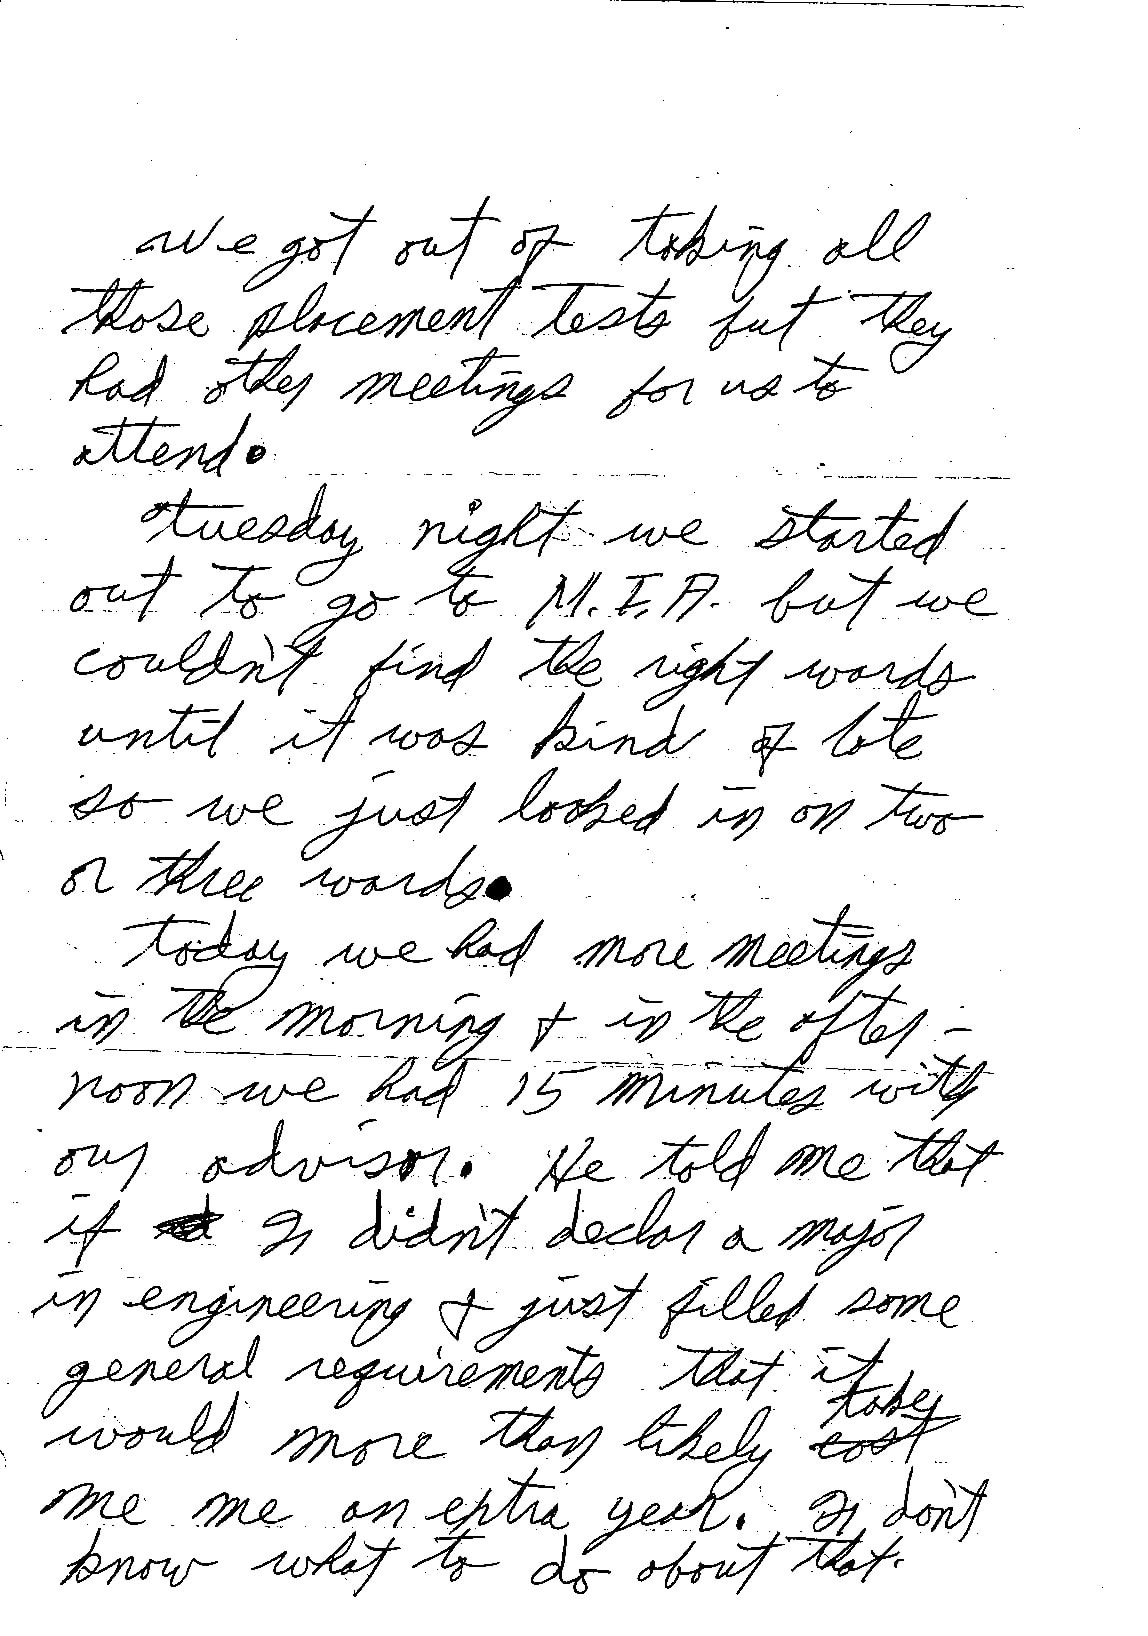 We got out of taking all
those placement tests but they
had other meetings for us to
attend.
Tuesday night we started
out to go to M.I.A. but we
couldn't find the right wards
until it was kind of late
so we just looked in on two
or three wards.
Today we had more meetings
in the morning & in the after-
noon we had 15 minutes with
our advisor. He told me that
if I didn't declar a major
in engineering & just filled some
general requirements that it
would more than likely cost take
me me an extra year. I don't
know what to do about that.